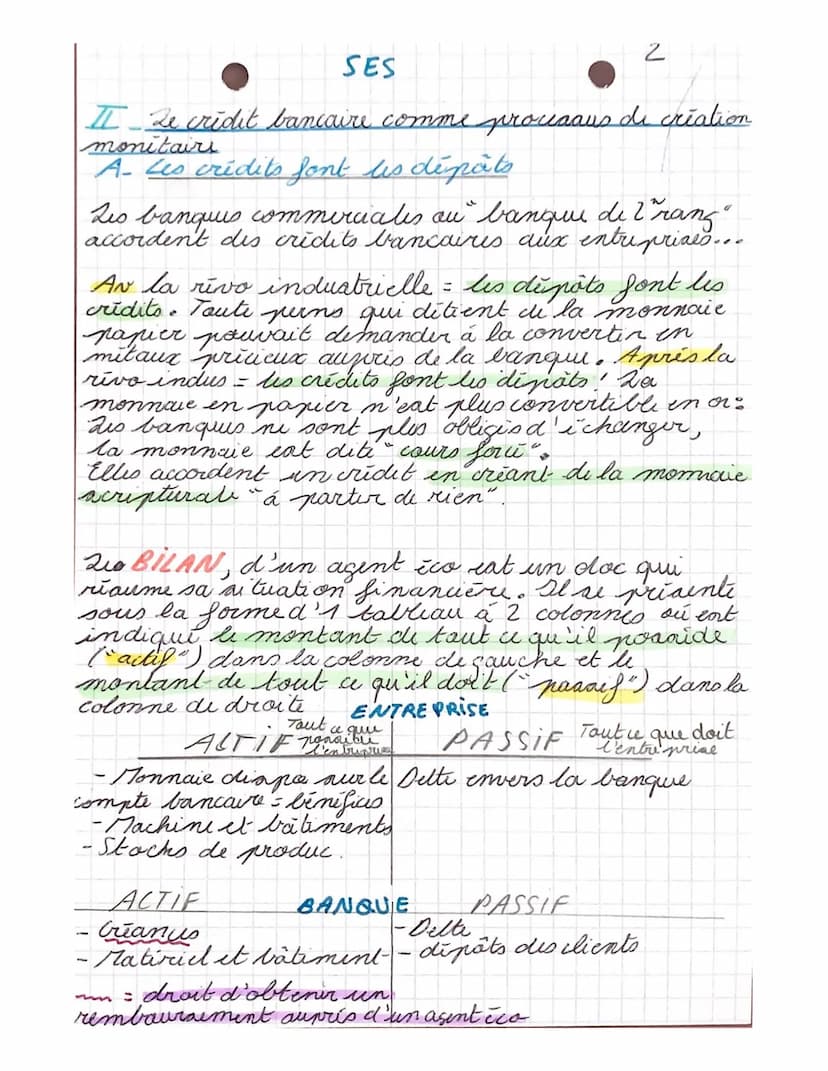 2
SES
II - Le crédit bancaire comme processus de création
monétaire
A- Les crédits font les dépôts
Les banques commerciales ou "banque de 2nd rang"
accordent des crédits bancaires aux entreprises...
Av la révo industrielle = les dépôts font les
crédits. Toute perns qui détient de la monnaie
papier pouvait demander à la convertir en
métaux précieux auprès de la banque. Après la
révo indus = les crédits font les dépôts! La
monnaie en papier n'est plus convertible en or:
les banques ne sont plus obligés d'échanger,
la monnaie est dite "cours forcé".
Elles accordent un crédit en créant de la monnaie
scripturale "à partir de rien".
Le BILAN, d'un agent éco est un doc qui
résume sa situation financière. Il se présente
sous la forme d'1 tableau à 2 colonnes où est
indiqué le montant de tout ce qu'il possède
("actif") dans la colonne de gauche et le
montant de tout ce qu'il doit ("passif") dans la
colonne de droite
ENTREPRISE
ACTIF Tout ce que possède l'entreprise
PASSIF Tout ce que doit l'entreprise
- Monnaie dispo sur le
compte bancaire = bénéfices
- Machine et bâtiments
- Stocks de produc.
Dette envers la banque
BANQUE
ACTIF
- Créances
- Matériel et bâtiment
PASSIF
- Dette
- dépôts des clients
= droit d'obtenir un
remboursement auprès d'un agent éco